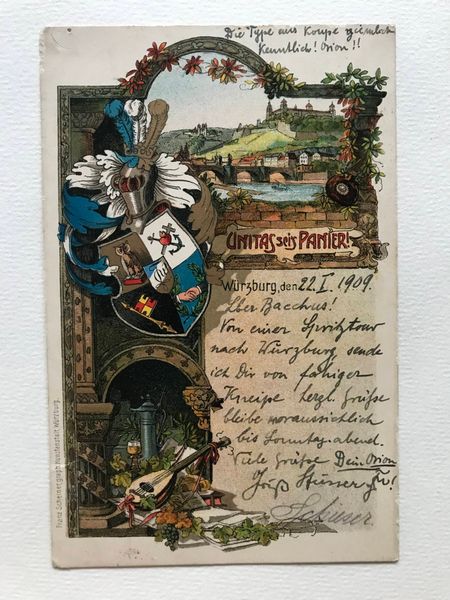 Die Type aus Knipe ziemlich
Kenntlich! Orion!!
UNITAS seis PANIER!
Würzburg, den 22. I. 1909.
Lber Bacchus!
Von einer Spritztour
nach Würzburg sende
ich Dir von
Kneipe herzl. Grüße
bleibe voraussichtlich
bis Sonntag abend.
Viele Grüße Dein Orion
Franz Scheiner, graph. Kunstanstalt, Würzburg.